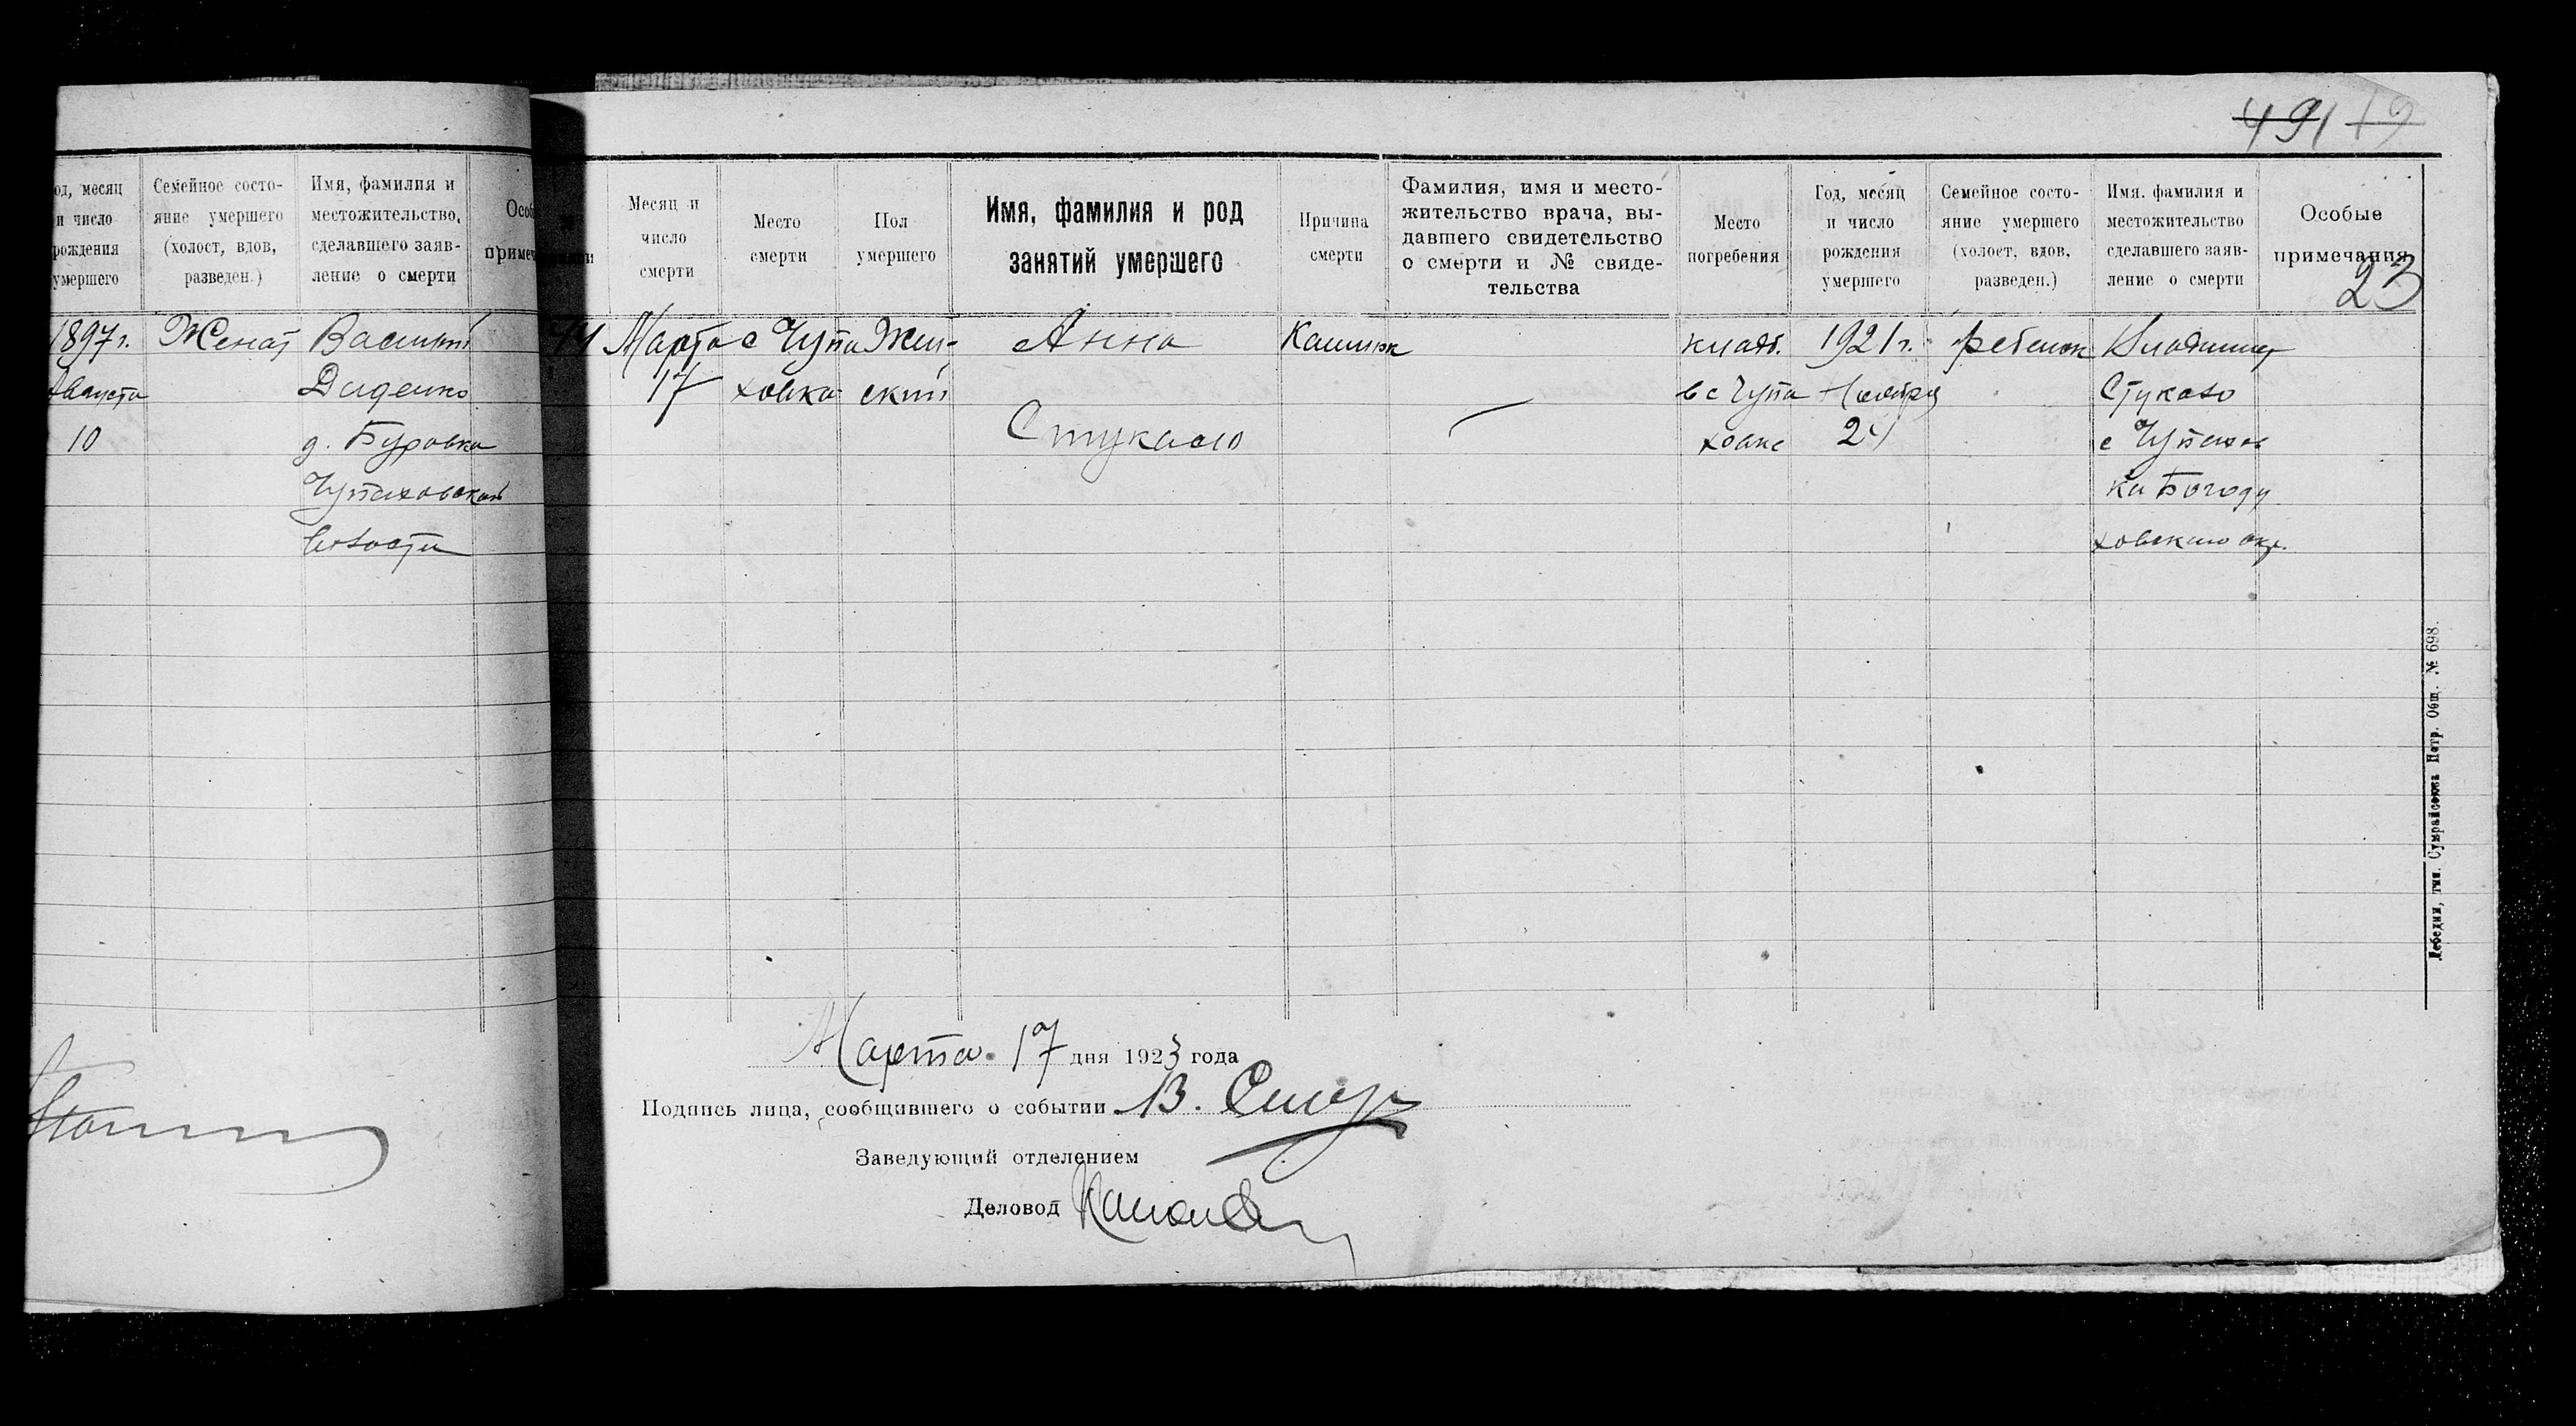 491 19
од, месяц
и число
рождения
умершего
Семейное состо-
яние умершего
(холост, вдов,
разведен.)
Имя, фамилия и
местожительство,
сделавшего заяв-
ление о смерти
Особ
примеч
1897 г.
Августа
10
Женат
Василий
Диденко
д. Буровка
Чупаховской
волости
Месяц и
число
смерти
Место
смерти
Пол
умершего
Имя, фамилия и род
занятий умершего
Причина
смерти
Фамилия, имя и место-
жительство врача, вы-
давшего свидетельство
о смерти и № свиде-
тельства
Место
погребения
Год, месяц
и число
рождения
умершего
Семейное состо-
яние умершего
(холост, вдов,
разведен.)
Имя. фамилия и
местожительство
сделавшего заяв-
ление о смерти
Особые
примечания
23
Марта
17
с Чупа
ховка
Жен-
ский
Анна
Кашлюк
кладб.
в с Чупа
ховке
1921 г.
Ноября
24
ребенок
Владимир
Стукало
с Чупахов
ки Богоду
ховского окр.
Марта 17 дня 1923 года
Подпись лица, сообщившего о событии В.
Заведующий отделением
Деловод
Лебедин, тип. Сумрайсоюза Потр. Общ. № 698.